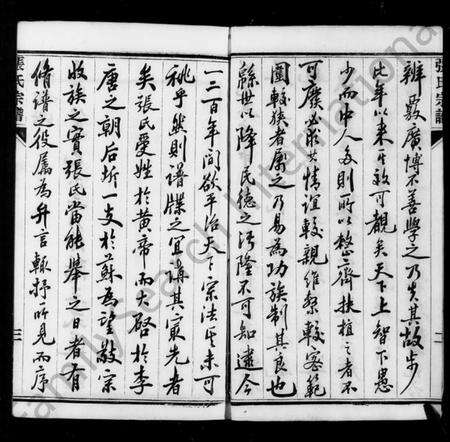 張氏宗譜
辨覈廣博不善學之乃失其故步
比年以来其效可覩矣天下上智下愚
少而中人多則所以整齊扶植之者不
可廢必求其情誼較親維繫較密範
圍較狭者屬之乃易為功族制其良也
緜世以降民德之汚隆不可知逮今
一二百年间欲平治天下宗法其未可
祧乎然則譜牒之宜講其寔先者
矣張氏受姓於黄帝而大啟於李
唐之朝后析一支於蘇為望敬宗
收族之實張氏當能舉之日者有
脩譜之役屬為弁言輙抒所見而序
張氏宗譜
FamilySearch International